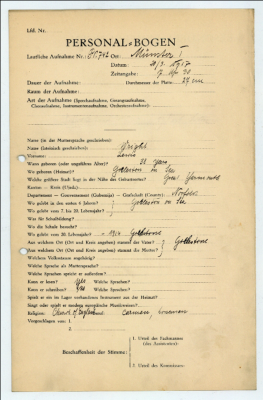 Lfd. Nr.
PERSONAL-BOGEN
Lautliche Aufnahme Nr.: Ort: Münster I
Datum:
Zeitangabe:
Dauer der Aufnahme: Durchmesser der Platte: 27 cm
Raum der Aufnahme:
Art der Aufnahme (Sprechaufnahme, Gesangsaufnahme,
Choraufnahme, Instrumentenaufnahme, Orchesteraufnahme):
Name (in der Muttersprache geschrieben):
Name (lateinisch geschrieben): Wright
Vorname:
Wann geboren (oder ungefähres Alter)? 21 Years
Wo geboren (Heimat)?
Welche größere Stadt liegt in der Nähe des Geburtsortes? Great Yarmouth
Kanton — Kreis (Ujezd):
Departement — Gouvernement (Gubernija) — Grafschaft (County): Norfolk
Wo gelebt in den ersten 6 Jahren?
Wo gelebt vom 7. bis 20. Lebensjahr?
Was für Schulbildung?
Wo die Schule besucht?
Wo gelebt vom 20. Lebensjahr? 1914
Aus welchem Ort (Ort und Kreis angeben) stammt der Vater?
Aus welchem Ort (Ort und Kreis angeben) stammt die Mutter?
Welchem Volksstamm angehörig?
Welche Sprache als Muttersprache?
Welche Sprachen spricht er außerdem?
Kann er lesen? Yes Welche Sprachen?
Kann er schreiben? Yes Welche Sprachen?
Spielt er ein im Lager vorhandenes Instrument aus der Heimat?
Singt oder spielt er modern europäische Musikweisen?
Religion: Church of England
Vorgeschlagen von: 1.
2.
Beschaffenheit der Stimme:
1. Urteil des Fachmannes
(des Assistenten):
2. Urteil des Kommissars: